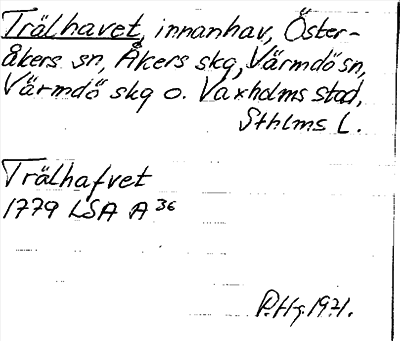 Trälhavet, innanhav, Öster-
åkers sn, Åkers skg, Värmdö sn,
Värmdö skg o. Vaxholms stad,
Sthlms l.
Trälhafvet
1779 LSA A 36
P.Hg. 1971.